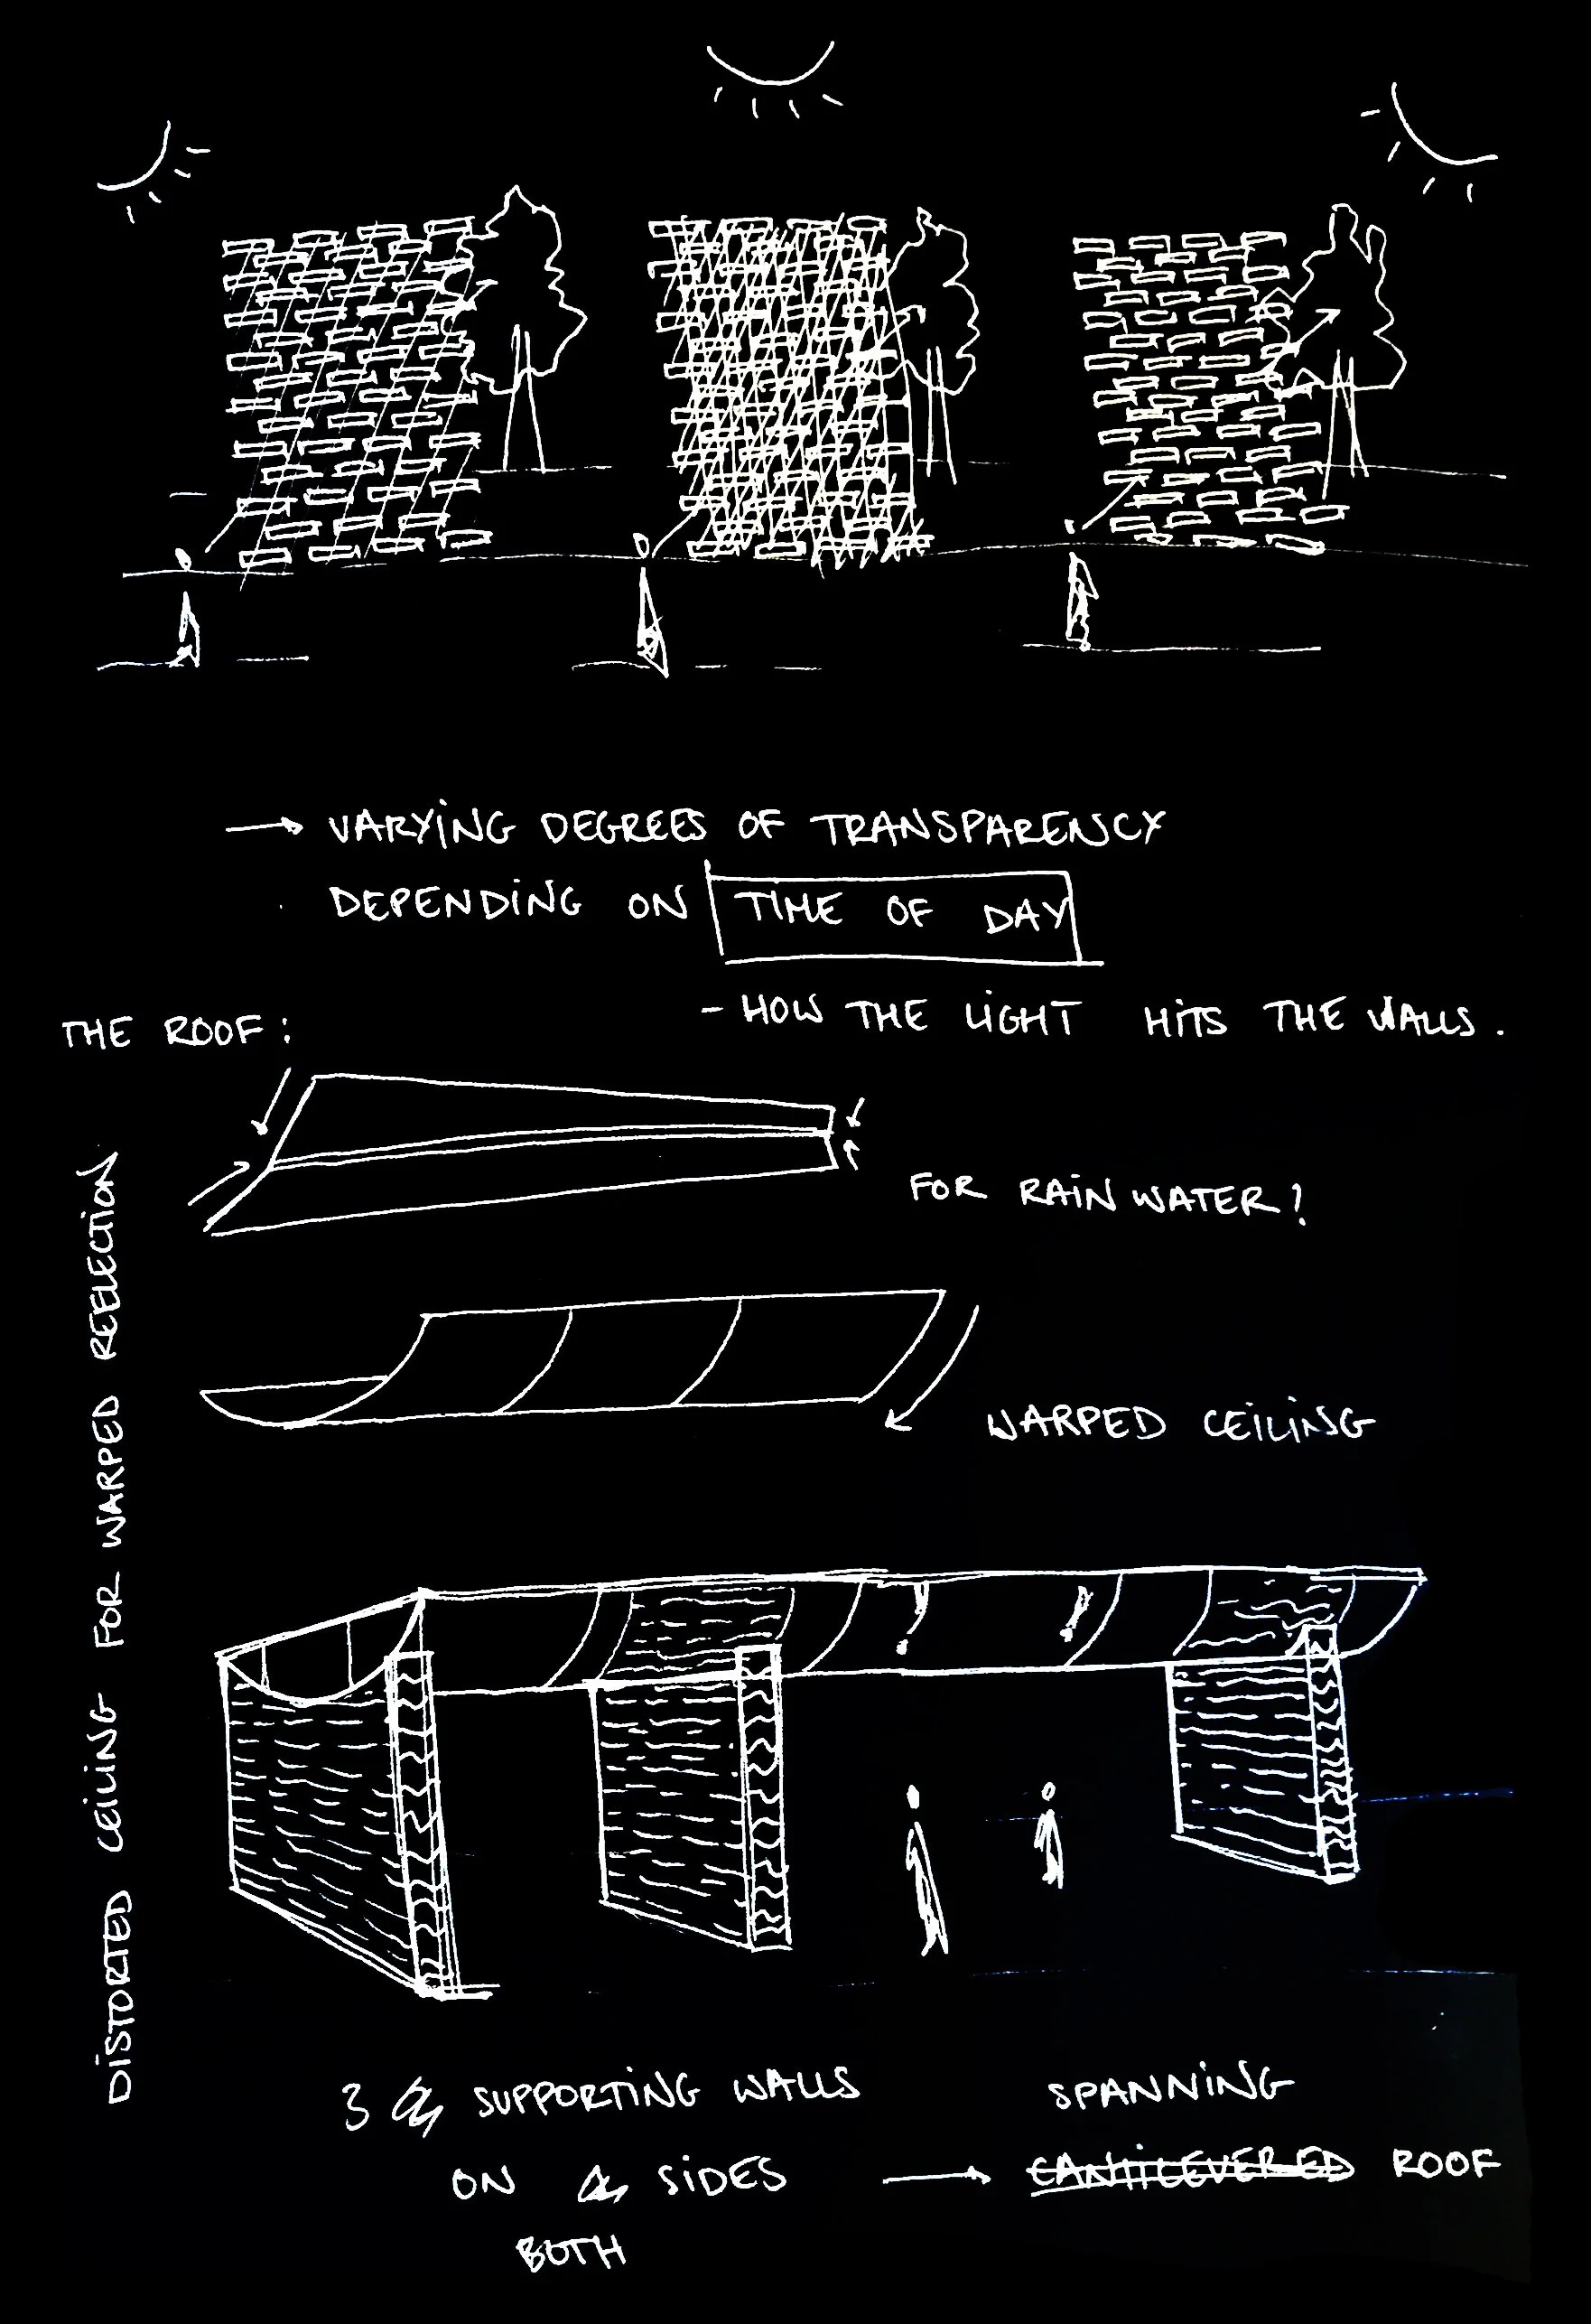 → VARYING DEGREES OF TRANSPARENCY
DEPENDING ON TIME OF DAY
- HOW THE LIGHT HITS THE WALLS.
THE ROOF:
FOR RAIN WATER?
WARPED CEILING
DISTORTED CEILING FOR WARPED REFLECTION
3 SUPPORTING WALLS
ON SIDES
BOTH
→ SPANNING
CANTILEVERED ROOF